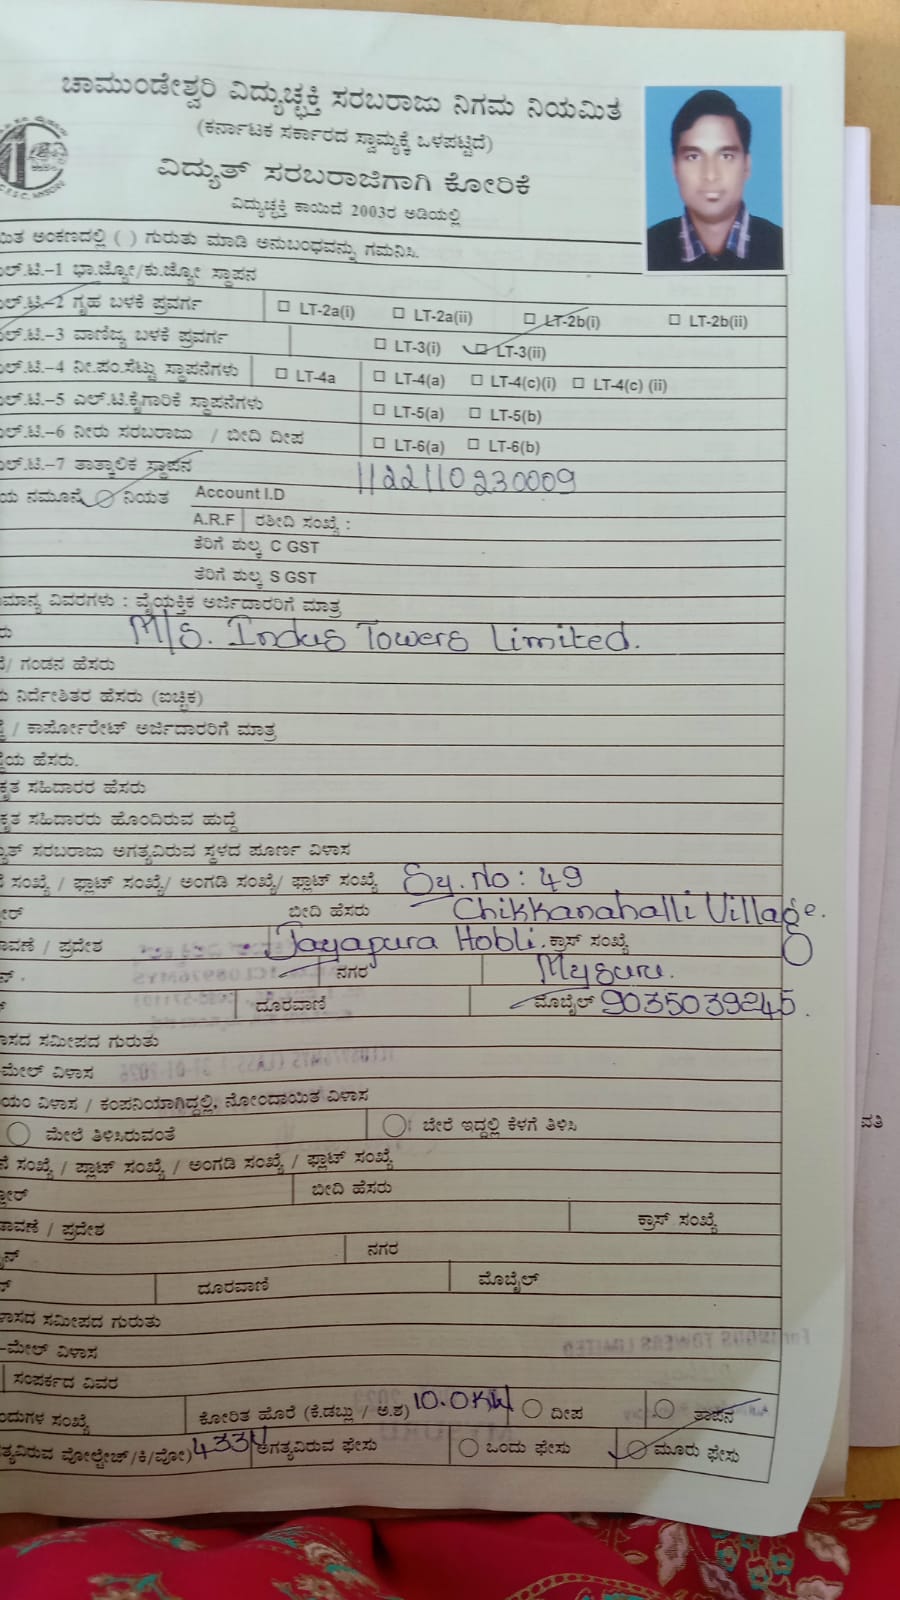 ಚಾಮುಂಡೇಶ್ವರಿ ವಿದ್ಯುಚ್ಛಕ್ತಿ ಸರಬರಾಜು ನಿಗಮ ನಿಯಮಿತ
(ಕರ್ನಾಟಕ ಸರ್ಕಾರದ ಸ್ವಾಮ್ಯಕ್ಕೆ ಒಳಪಟ್ಟಿದೆ)
ವಿದ್ಯುತ್ ಸರಬರಾಜಿಗಾಗಿ ಕೋರಿಕೆ
ವಿದ್ಯುಚ್ಛಕ್ತಿ ಕಾಯಿದೆ 2003ರ ಅಡಿಯಲ್ಲಿ
ಅಂಕಣದಲ್ಲಿ ( ) ಗುರುತು ಮಾಡಿ ಅನುಬಂಧವನ್ನು ಗಮನಿಸಿ.
ಲ್.ಟಿ.-1 ಭಾ.ಜ್ಯೋ/ಕು.ಜ್ಯೋ ಸ್ಥಾಪನ
ಲ್.ಟಿ.-2 ಗೃಹ ಬಳಕೆ ಪ್ರವರ್ಗ ☐ LT-2a(i) ☐ LT-2a(ii) ☐ LT-2b(i) ☐ LT-2b(ii)
ಲ್.ಟಿ.-3 ವಾಣಿಜ್ಯ ಬಳಕೆ ಪ್ರವರ್ಗ ☐ LT-3(i) ☐ LT-3(ii)
ಲ್.ಟಿ.-4 ನೀ.ಪಂ.ಸೆಟ್ಟು ಸ್ಥಾಪನೆಗಳು ☐ LT-4a ☐ LT-4(a) ☐ LT-4(c)(i) ☐ LT-4(c) (ii)
ಲ್.ಟಿ.-5 ಎಲ್.ಟಿ.ಕೈಗಾರಿಕೆ ಸ್ಥಾಪನೆಗಳು ☐ LT-5(a) ☐ LT-5(b)
ಲ್.ಟಿ.-6 ನೀರು ಸರಬರಾಜು / ಬೀದಿ ದೀಪ ☐ LT-6(a) ☐ LT-6(b)
ಲ್.ಟಿ.-7 ತಾತ್ಕಾಲಿಕ ಸ್ಥಾಪನ 1122110230009
ಯ ನಮೂನೆ ನಿಯತ Account I.D
A.R.F ರಶೀದಿ ಸಂಖ್ಯೆ :
ತೆರಿಗೆ ಶುಲ್ಕ C GST
ತೆರಿಗೆ ಶುಲ್ಕ S GST
ಮಾನ್ಯ ವಿವರಗಳು : ವೈಯಕ್ತಿಕ ಅರ್ಜಿದಾರರಿಗೆ ಮಾತ್ರ
ರು M/s. Indus Towers Limited.
/ ಗಂಡನ ಹೆಸರು
ನಿರ್ದೇಶಿತರ ಹೆಸರು (ಐಚ್ಛಿಕ)
/ ಕಾರ್ಪೋರೇಟ್ ಅರ್ಜಿದಾರರಿಗೆ ಮಾತ್ರ
ಯ ಹೆಸರು.
ಕೃತ ಸಹಿದಾರರ ಹೆಸರು
ಕೃತ ಸಹಿದಾರರು ಹೊಂದಿರುವ ಹುದ್ದೆ
ತ್ ಸರಬರಾಜು ಅಗತ್ಯವಿರುವ ಸ್ಥಳದ ಪೂರ್ಣ ವಿಳಾಸ
ಸಂಖ್ಯೆ / ಫ್ಲಾಟ್ ಸಂಖ್ಯೆ/ ಅಂಗಡಿ ಸಂಖ್ಯೆ/ ಪ್ಲಾಟ್ ಸಂಖ್ಯೆ Sy. No : 49
ರ್ ಬೀದಿ ಹೆಸರು Chikkanahalli Village.
ಾವಣೆ / ಪ್ರದೇಶ Jayapura Hobli. ಕ್ರಾಸ್ ಸಂಖ್ಯೆ
ನ್. ನಗರ Mysuru.
ದೂರವಾಣಿ ಮೊಬೈಲ್ 9035039245.
ಾಸದ ಸಮೀಪದ ಗುರುತು
ಮೇಲ್ ವಿಳಾಸ
ಯಂ ವಿಳಾಸ / ಕಂಪನಿಯಾಗಿದ್ದಲ್ಲಿ, ನೋಂದಾಯಿತ ವಿಳಾಸ
ಮೇಲೆ ತಿಳಿಸಿರುವಂತೆ ಬೇರೆ ಇದ್ದಲ್ಲಿ ಕೆಳಗೆ ತಿಳಿಸಿ
ಸಂಖ್ಯೆ / ಪ್ಲಾಟ್ ಸಂಖ್ಯೆ / ಅಂಗಡಿ ಸಂಖ್ಯೆ / ಫ್ಲಾಟ್ ಸಂಖ್ಯೆ
ೋರ್ ಬೀದಿ ಹೆಸರು
ಾವಣೆ / ಪ್ರದೇಶ ಕ್ರಾಸ್ ಸಂಖ್ಯೆ
ನ್ ನಗರ
ದೂರವಾಣಿ ಮೊಬೈಲ್
ಾಸದ ಸಮೀಪದ ಗುರುತು
-ಮೇಲ್ ವಿಳಾಸ
ಸಂಪರ್ಕದ ವಿವರ
ಂದುಗಳ ಸಂಖ್ಯೆ ಕೋರಿತ ಹೊರೆ (ಕಿ.ಡಬ್ಲು / ಅ.ಶ) 10.0KW ದೀಪ ತಾಪನ
ತ್ಯವಿರುವ ವೋಲ್ಟೇಜ್/ಕಿ/ವೋ) 433V ಅಗತ್ಯವಿರುವ ಫೇಸು ಒಂದು ಫೇಸು ಮೂರು ಫೇಸು
ವತಿ